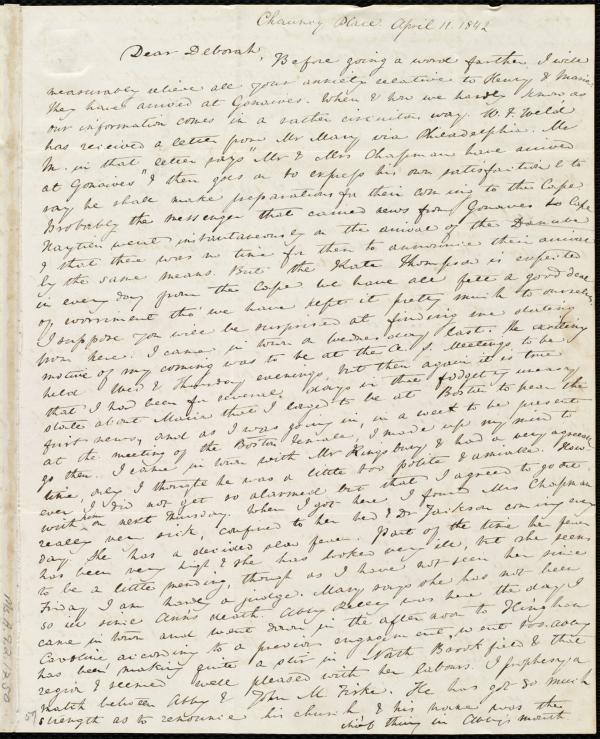 Chauncy Place. April 11. 1842
Dear Deborah, Before going a word farther, I will
measurably relieve all your anxiety relative to Henry & Maria.
They have arrived at Gonaives. When & how we hardly know as
our information comes in a rather circuitous way. W. F. Weld
has received a letter from Mr Many via Philadelphia. Mr
M. in that letter says "Mr & Mrs Chapman have arrived
at Gonaives" & then goes on to express his own satisfaction & to
say he shall make preparations for their coming to the Cape
Probably the messenger that carried news from Gonaives to Cape
Haytien went instantaneously on the arrival of the Danube
& that there was no time for them to announce their arrival
by the same means. But the Kate Thompson is expected
in every day from the Cape. We have all felt a good deal
of worriment tho' we have kept it pretty much to ourselves.
I suppose you will be surprised at finding me dating
from here. I came in town a wednesday last. The exciting
motive of my coming was to be at the A. S. Meetings to be
held Wed & Thursday evenings, but then again it is true
that I had been for several days in that fidgety uneasy
state about Maria that I longed to be at Boston to hear the
first news, and as I was going in, in a week to be present
at the meeting of the Boston Female, I made up my mind to
go then. I came in town with Mr Kingsbury & had a very agreeable
time, only I thought he was a little too polite & amiable. How-
ever, I did not get so alarmed but that I agreed to go out
with him on next Thursday. When I got here I found Mrs Chapman
really very sick, confined to her bed & Dr Jackson coming every
day. She has a decided slow fever. Part of the time her fever
has been very high & she has looked very ill, but she seems
to be a little mending, though as I have not seen her since
Friday I am hardly a judge. Mary says she has not been
so ill since Ann's death. Abby Kelley was here the day I
came in town and went down in the after noon to Hingham
Caroline according to a previous engagement, went too. Abby
has been making quite a stir in North Brookfield & that
region & seemed well pleased with her labours. I prophesy a
match between Abby & John M. Fiske. He has got so much
strength as to renounce his church & his name was the
chief thing in Abby's mouth
Ms.A.9.2.17.50